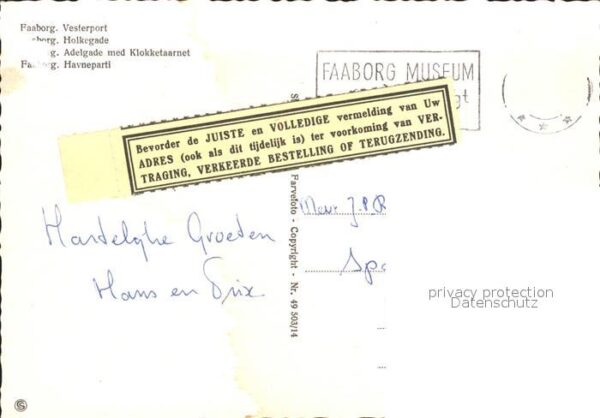 Faaborg. Vesterport
borg. Holkegade
g. Adelgade med Klokketaarnet
Fa borg. Havneparti
FAABORG MUSEUM
gt
Bevorder de JUISTE en VOLLEDIGE vermelding van Uw
ADRES (ook als dit tijdelijk is) ter voorkoming van VER-
TRAGING, VERKEERDE BESTELLING OF TERUGZENDING.
Farvefoto - Copyright - Nr. 49 503/14
Hartelijke Groeten
Hans en
Mevr J.P.R
Spa
privacy protection
Datenschutz